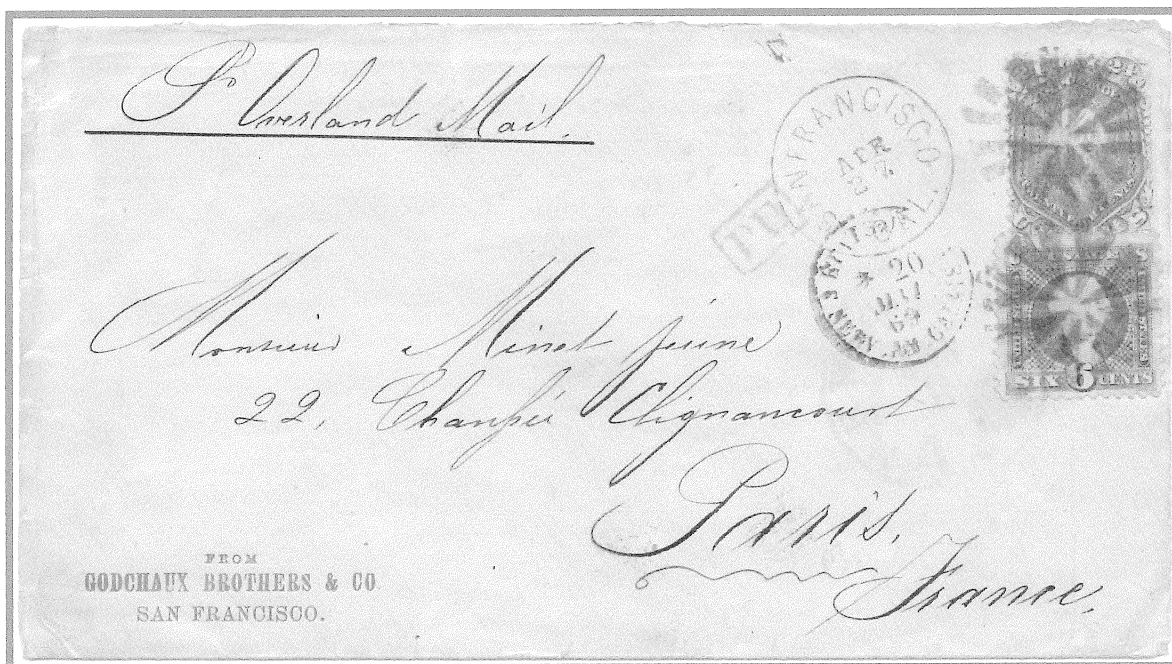 Pr Overland Mail.
SAN FRANCISCO CAL.
APR
27
PD
20
MAI
69
CALAIS
SIX 6 CENTS
Monsieur Minet jeune
22, Chaussée Clignancourt
Paris.
France.
FROM
GODCHAUX BROTHERS & CO
SAN FRANCISCO.